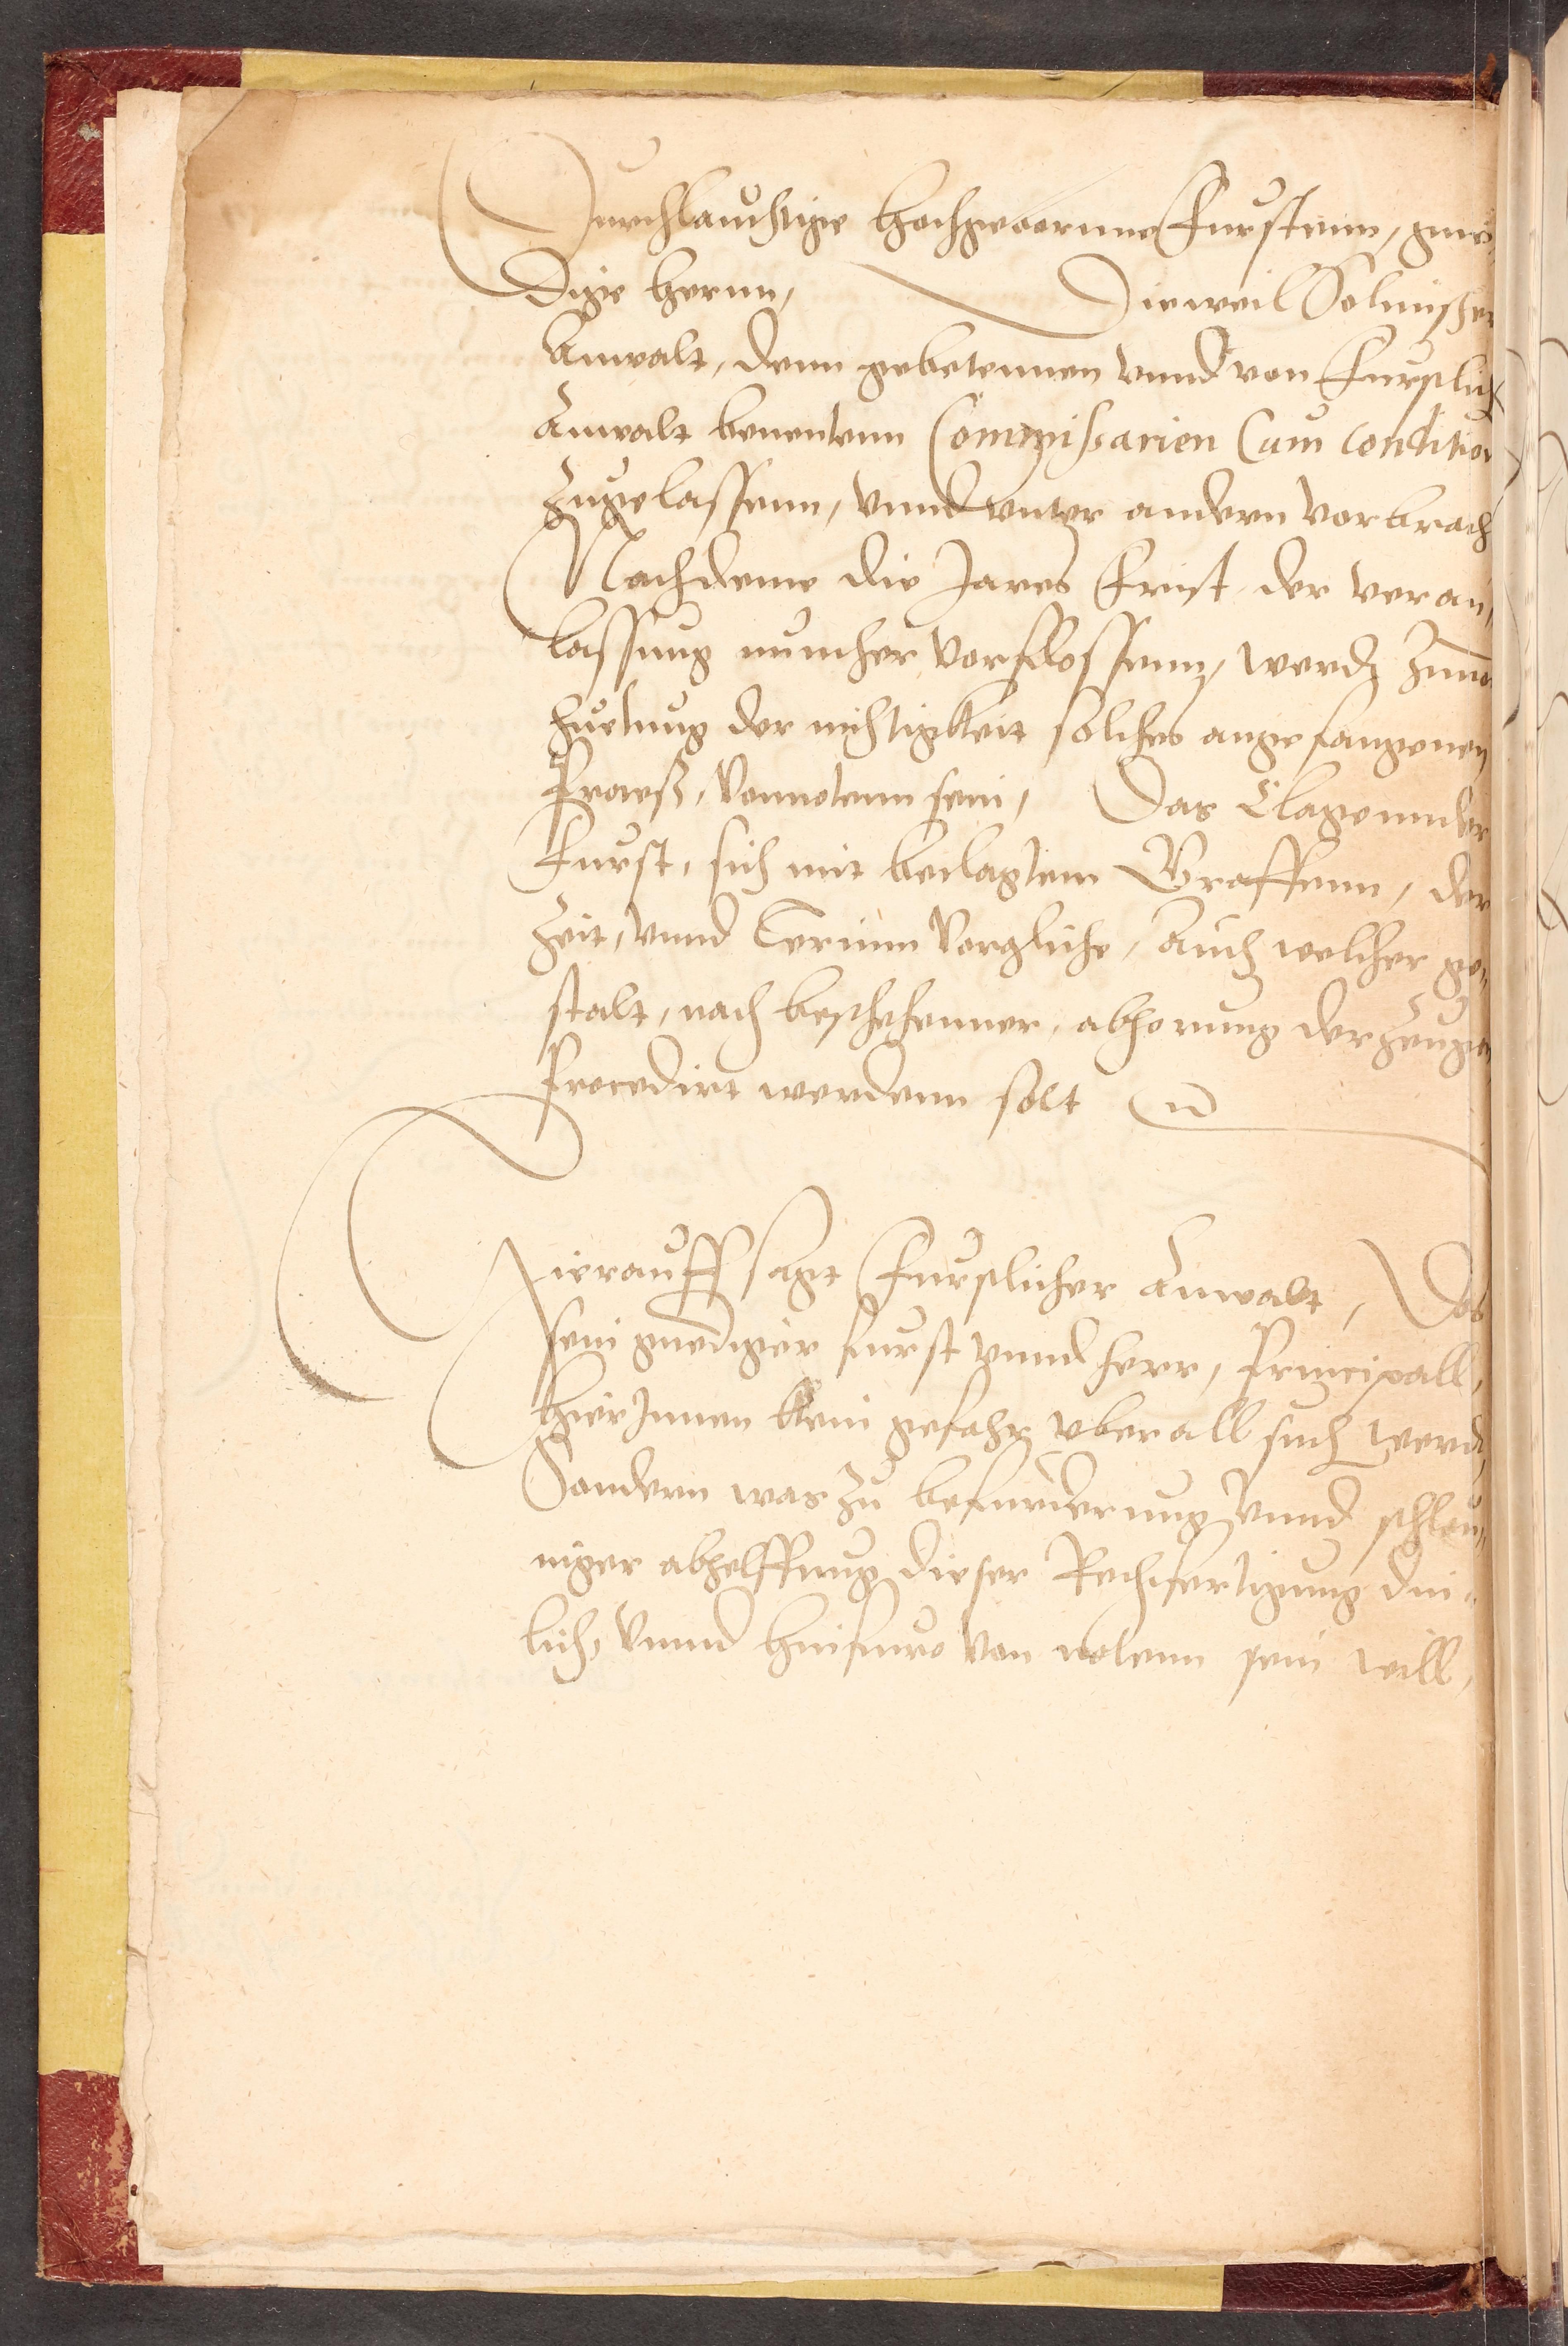 Durchlauchtige hochgeborune Furstenn, gne¬
dige hernn, Dieweil Solmischer
Anwalt, denn gebetennen vnnd von Furstlich
Anwalt benentenn Commissarien Cum condition
zugelassenn, vnnd vnter andern vorbracht
Nachdeme die Jares Frist, der veran¬
lassung nuncher vorflossenn, werd zuuor
huetung der nichtigkeit solches angefangenen
Proceß, vonnotenn sein, Das Clagennder
Furst, sich mit beclagtem Graffenn, der
Zeit, vnnd Termin vorgliche, Auch welcher ge¬
stalt, nach beschehenner, abhorung der Zeugen
Procedirt werdenn solt
Hierauff sagt Furstlicher Anwalt, Das
sein gnediger furst vnnd herr, Principall,
hierInnen kein gefahr vberall such werd
Sondern was zu befurderung vnnd schleu¬
niger abhelffung dieser Rechtfertigung din¬
lich, vnnd hinfuro von notenn sein will,